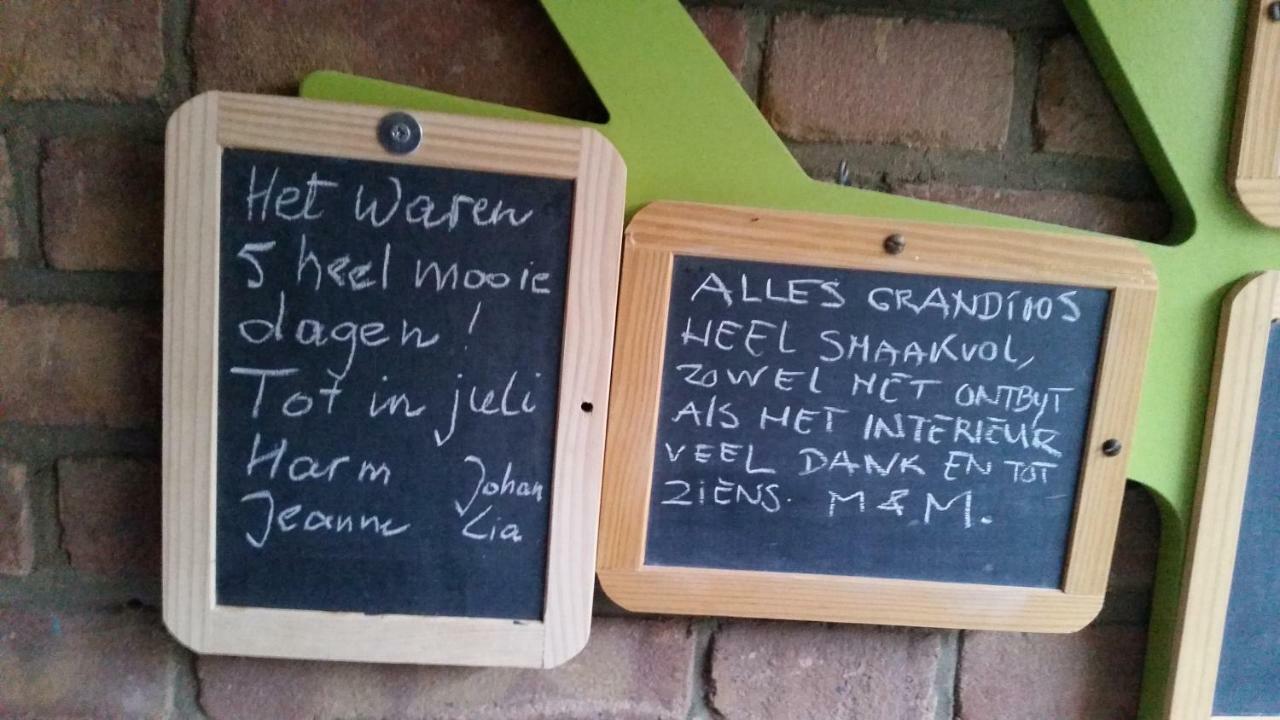 Het Waren
5 heel mooie
dagen!
Tot in juli
Harm Johan
Jeanne Lia
ALLES GRANDiOOS
HEEL SMAAKVOL,
ZOWEL HET ONTBYT
AlS HET INTERIEUR
VEEL DANK EN TOT
ZiENS. M & M.